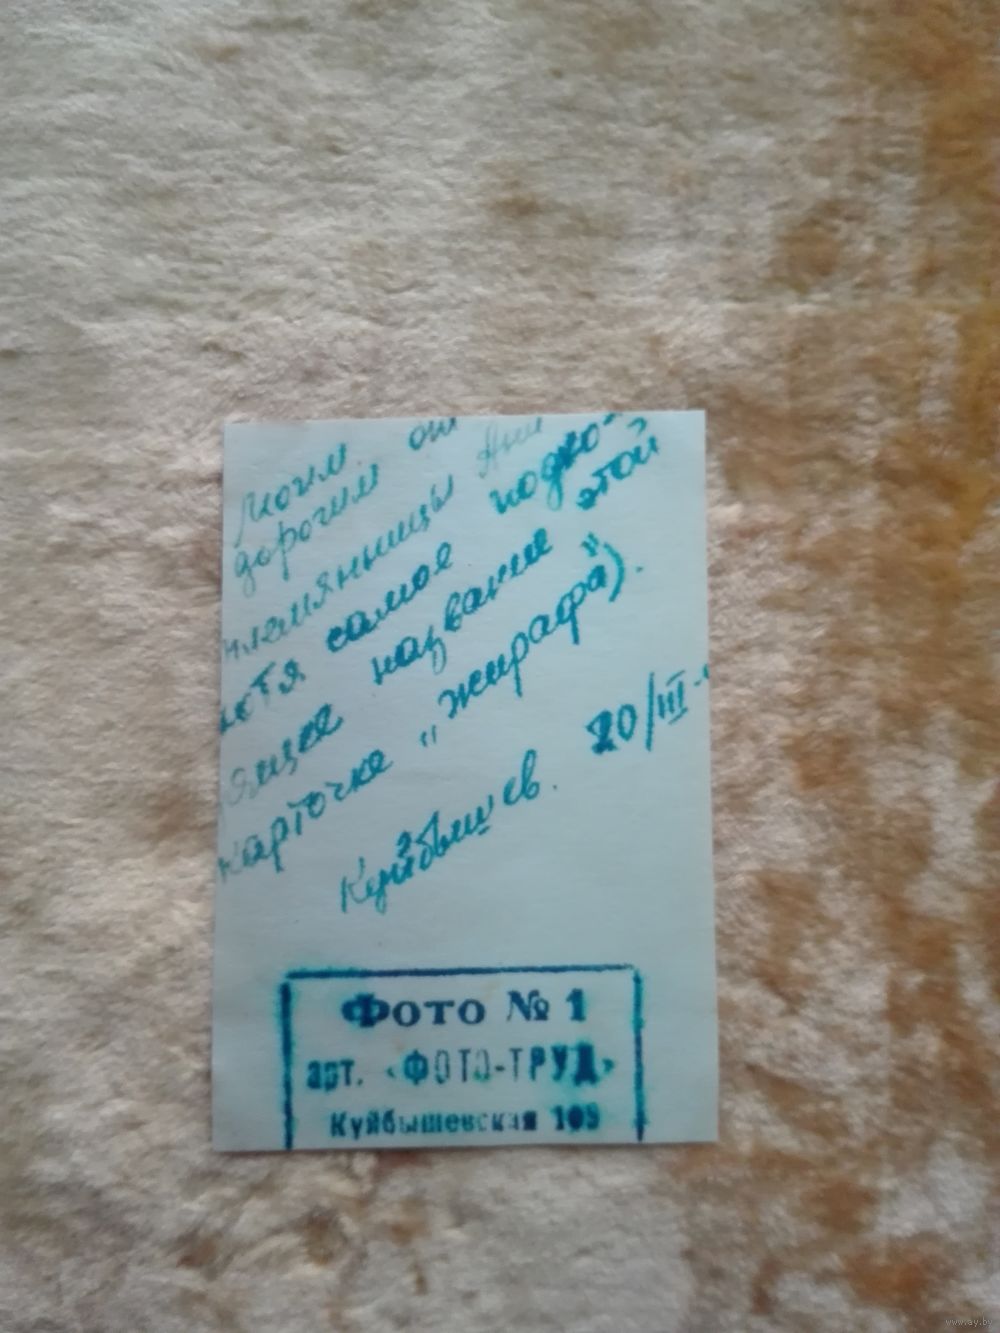 Моим
дорогим от
племянницы Ани
хотя самое подхо-
дящее название этой
карточке "жирафа").
Куйбышев. 20/III-
Фото № 1
арт. «ФОТО-ТРУД»
Куйбышевская 109
www.ay.by